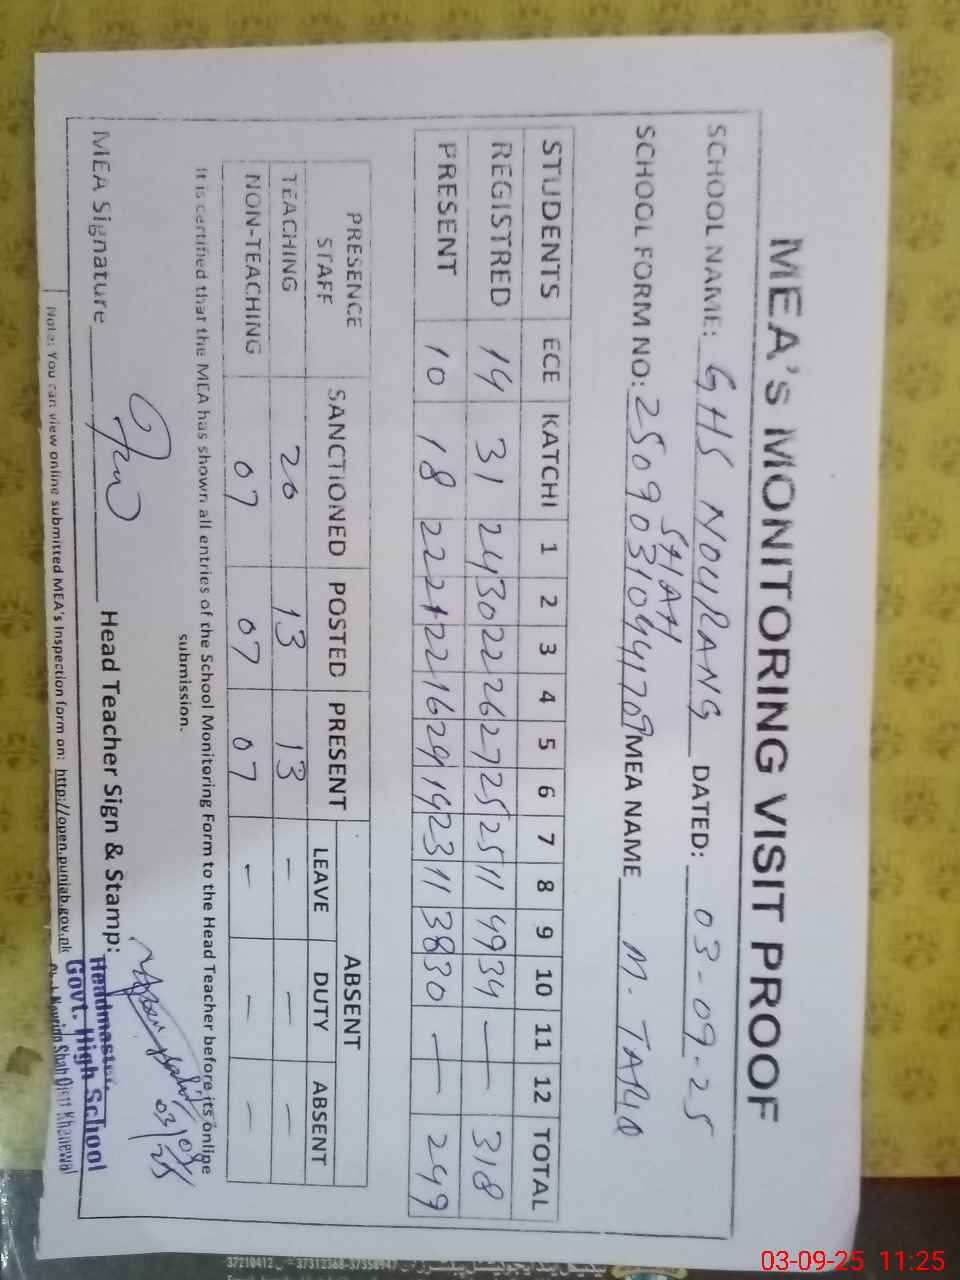 MEA's MONITORING VISIT PROOF
SCHOOL NAME: GHS NOURANG SHAH DATED: 03-09-25
SCHOOL FORM NO: 25090310441709 MEA NAME M. TARIQ
STUDENTS ECE KATCHI 1 2 3 4 5 6 7 8 9 10 11 12 TOTAL
REGISTRED 14 31 24 30 22 26 27 25 25 11 49 34 — — 318
PRESENT 10 18 22 21 22 16 24 14 23 11 38 30 — — 249
PRESENCE STAFF SANCTIONED POSTED PRESENT ABSENT
LEAVE DUTY ABSENT
TEACHING 20 13 13 — — —
NON-TEACHING 07 07 07 — — —
It is certified that the MEA has shown all entries of the School Monitoring Form to the Head Teacher before its online
submission.
MEA Signature Head Teacher Sign & Stamp:
03/09/25
Headmaster
Govt. High School
Nourang Shah Distt Khanewal
Note: You can view online submitted MEA's Inspection form on: http://open.punjab.gov.pk
37210412 37312368-37358947
03-09-25 11:25